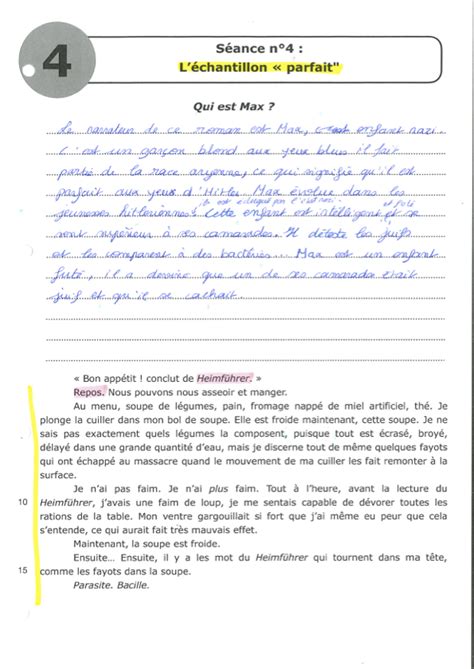 4
Séance n°4 :
L'échantillon « parfait"
Qui est Max ?
Le narrateur de ce roman est Max, enfant nazi.
C'est un garçon blond aux yeux bleus il fait
partie de la race aryenne, ce qui signifie qu'il est
parfait aux yeux d'Hitler. Max évolue dans les
jeunesses hitlériennes. Cette enfant est intelligent et se
il est éduqué par l'état nazi et futé
sent supérieur à ses camarades. Il déteste les juifs
et les comparent à des bactéries... Max est un enfant
futé, il a que un de ses camarades était
juif et qu'il se cachait.
« Bon appétit ! conclut de Heimführer. »
Repos. Nous pouvons nous asseoir et manger.
Au menu, soupe de légumes, pain, fromage nappé de miel artificiel, thé. Je
plonge la cuiller dans mon bol de soupe. Elle est froide maintenant, cette soupe. Je ne
sais pas exactement quels légumes la composent, puisque tout est écrasé, broyé,
délayé dans une grande quantité d'eau, mais je discerne tout de même quelques fayots
qui ont échappé au massacre quand le mouvement de ma cuiller les fait remonter à la
surface.
Je n'ai pas faim. Je n'ai plus faim. Tout à l'heure, avant la lecture du
10 Heimführer, j'avais une faim de loup, je me sentais capable de dévorer toutes les
rations de la table. Mon ventre gargouillait si fort que j'ai même eu peur que cela
s'entende, ce qui aurait fait très mauvais effet.
Maintenant, la soupe est froide.
Ensuite... Ensuite, il y a les mot du Heimführer qui tournent dans ma tête,
15 comme les fayots dans la soupe.
Parasite. Bacille.